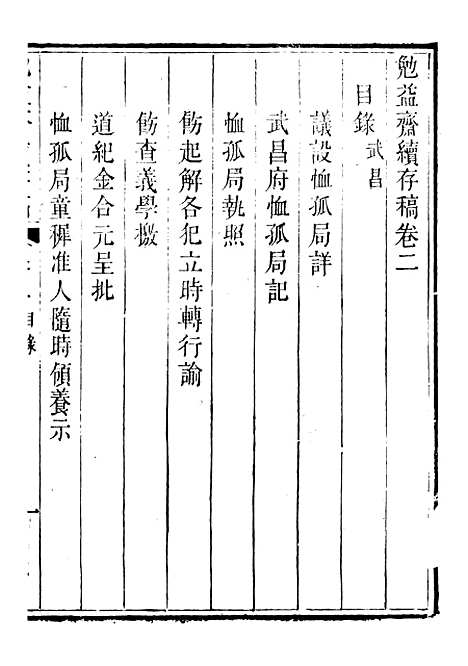 勉益齋續存稿卷二
目錄 武昌
議設恤孤局詳
武昌府恤孤局記
恤孤局執照
飭起解各犯立時轉行諭
飭查義學檄
道紀金合元呈批
恤孤局童穉准人隨時領養示
目錄
一